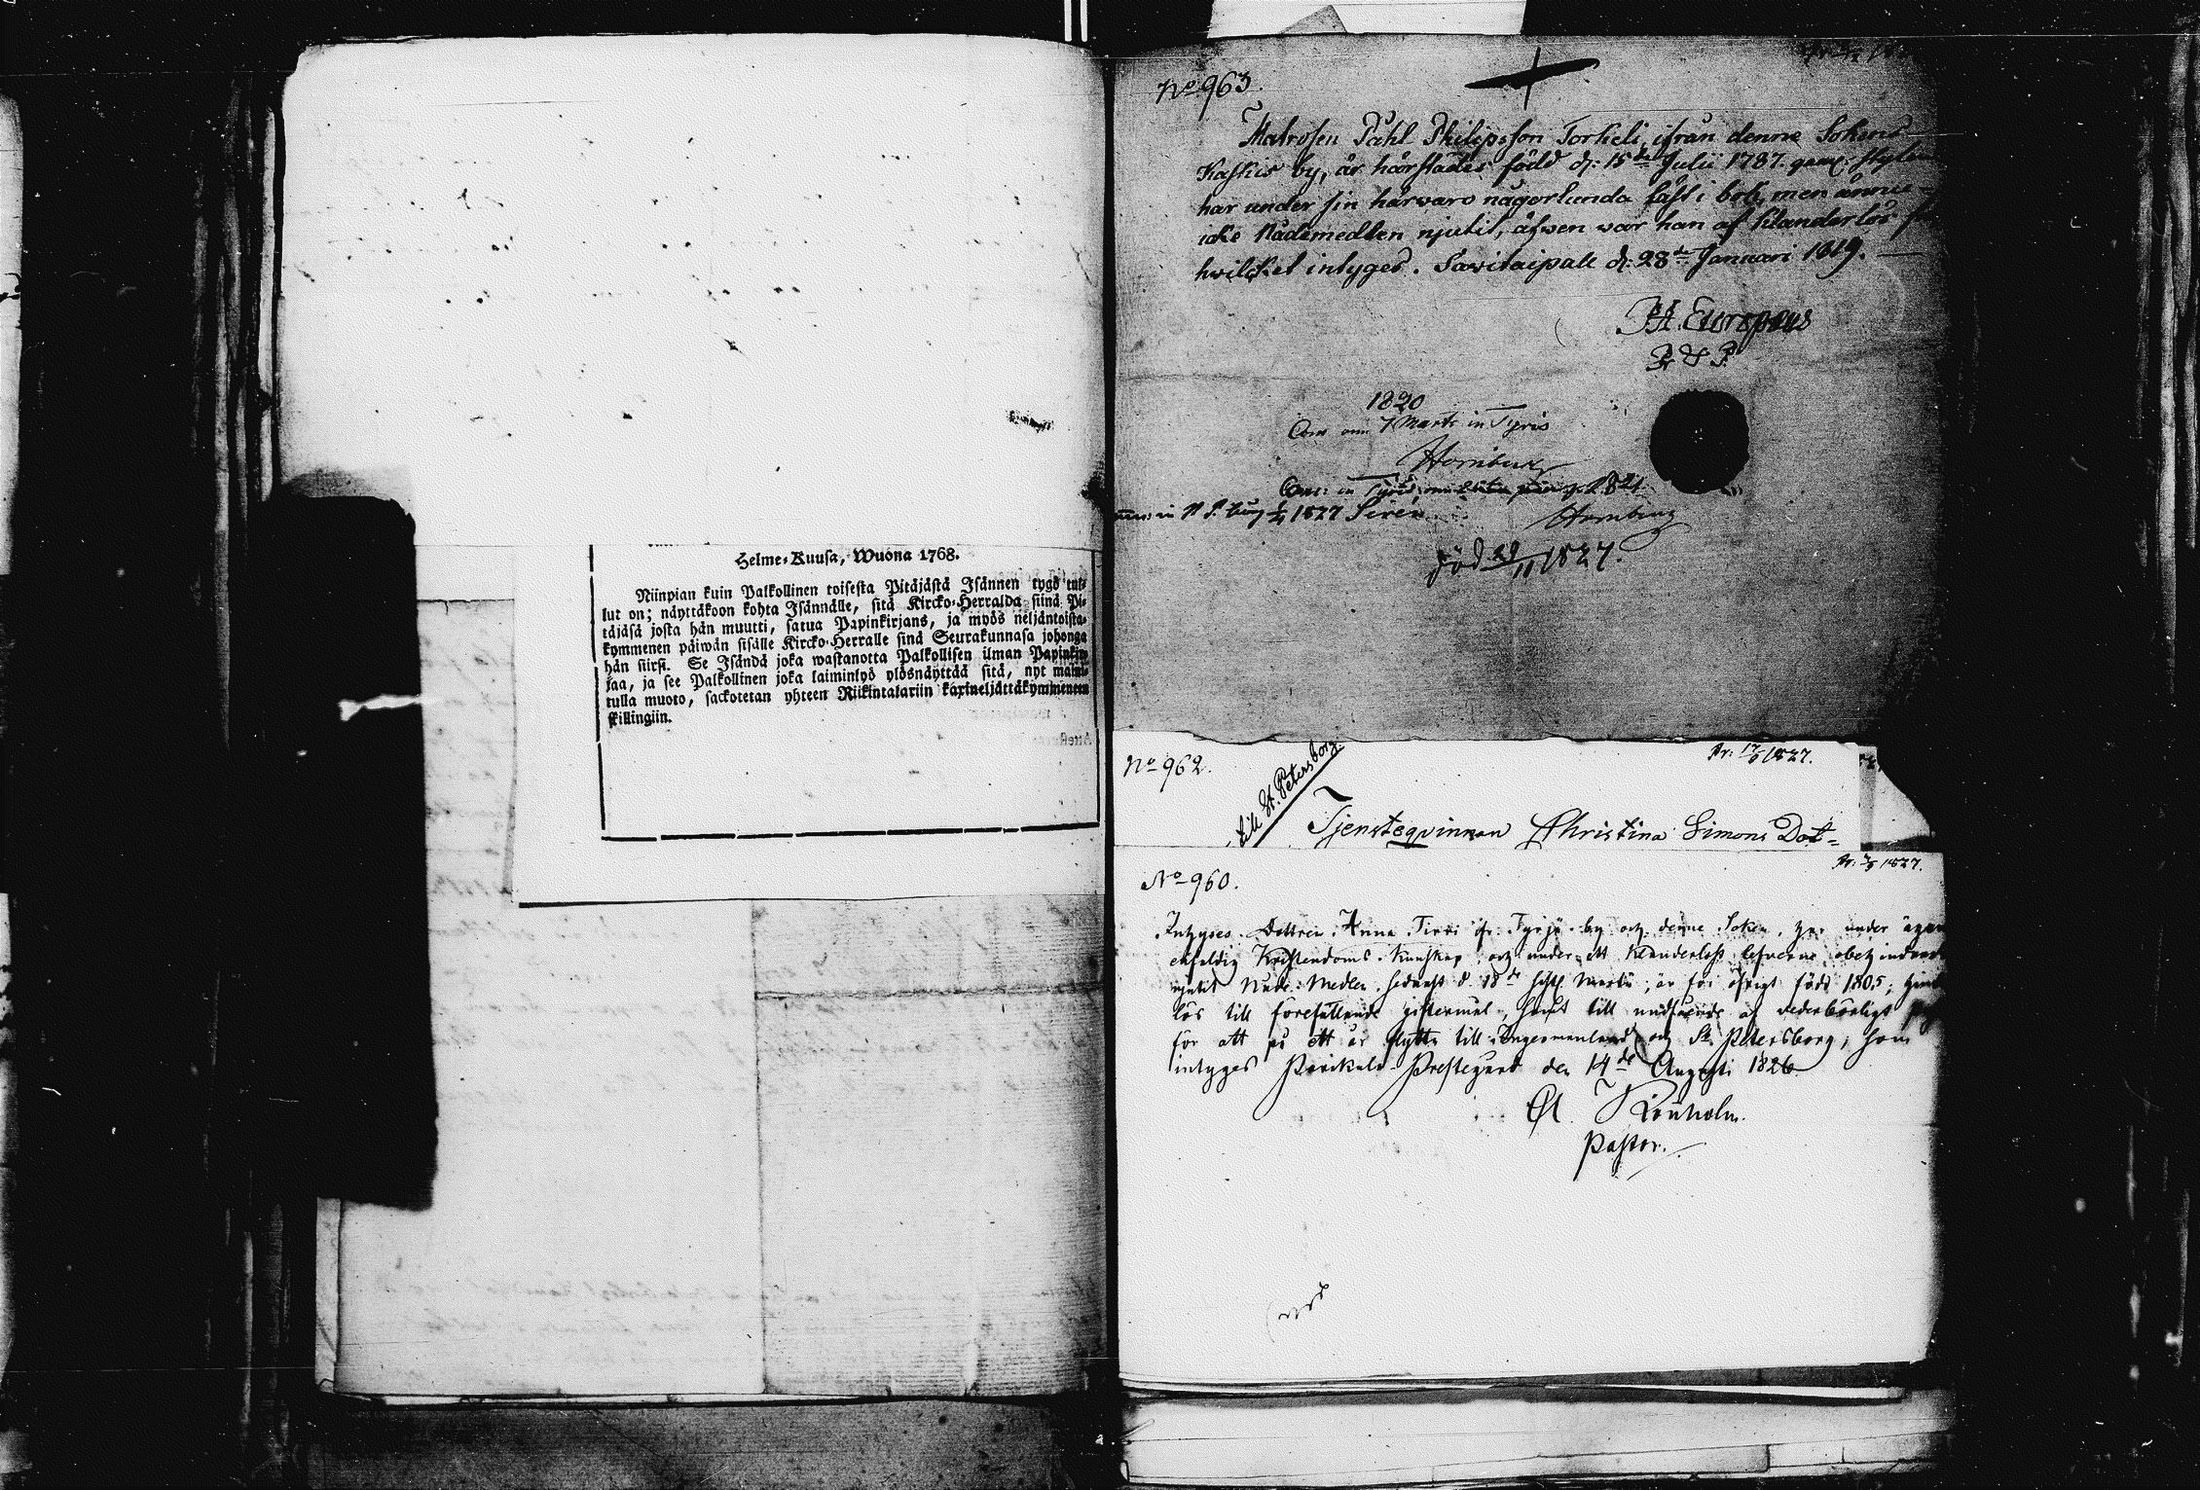 Helme-Kuusa, Wuona 1768.
Niinpian kuin Palkollinen toisesta Pitäjästä Isännen tygö tul-
lut on; näyttäköön kohta Isännälle, sitä Kircko-Herralda siinä Pi-
täjäsä josta hän muutti, saatua Papinkirjans, ja myös neljäntoista-
kymmenen päiwän sisälle Kircko-Herralle sinä Seurakunnasa johonga
hän siirsi. Se Isändä joka wastanotta Palkollisen ilman Papinkir-
jaa, ja see Palkollinen joka laiminlyö ylösnäyttää sitä, nyt maini-
tulla muoto, sackotetan yhteen Riikintalariin kaxineljättäkymmeneen
skillingiin.
No 963.
Matrosen Påhl Philipsson Torkeli, ifrån denne Sokens
Kaskis by, är härstädes född d: 15de Julii 1787. gaml. stylen
har under sin härvaro någorlunda läst i bok, men ännu
icke Nådemedlen njutit, äfwen war han af Klanderlös
hwilcket intyges. Sawitaipall d: 28de Januari 1819.
H. Europæus
1820
7 Martii in Tyris
Hornborg
1821
Hornborg
1827 Sirén
död 29/11 1827.
No 962.
till St. Petersborg
Pr: 17/6 1827.
Tjensteqvinnan Christina Simons Dot-
No 960.
1827.
Intyges Dottren Anna Tirri fr. Tyrjä by och denne Soken, har under ägan
enfaldig Kristendoms Kunskap och under ett klanderlöst lefverne obehindrat
njutit Nåde Medlen sednast d. 18de Martii, är för öfrigt född 1805;
lös till förefallande giftermål, samt till undfående af vederbörligt
för att på ett år flytta till Ingermanland och St. Petersborg, som
intyges Parikkala Prestegård den 14de Augusti 1826.
Lönnholm.
Pastor.